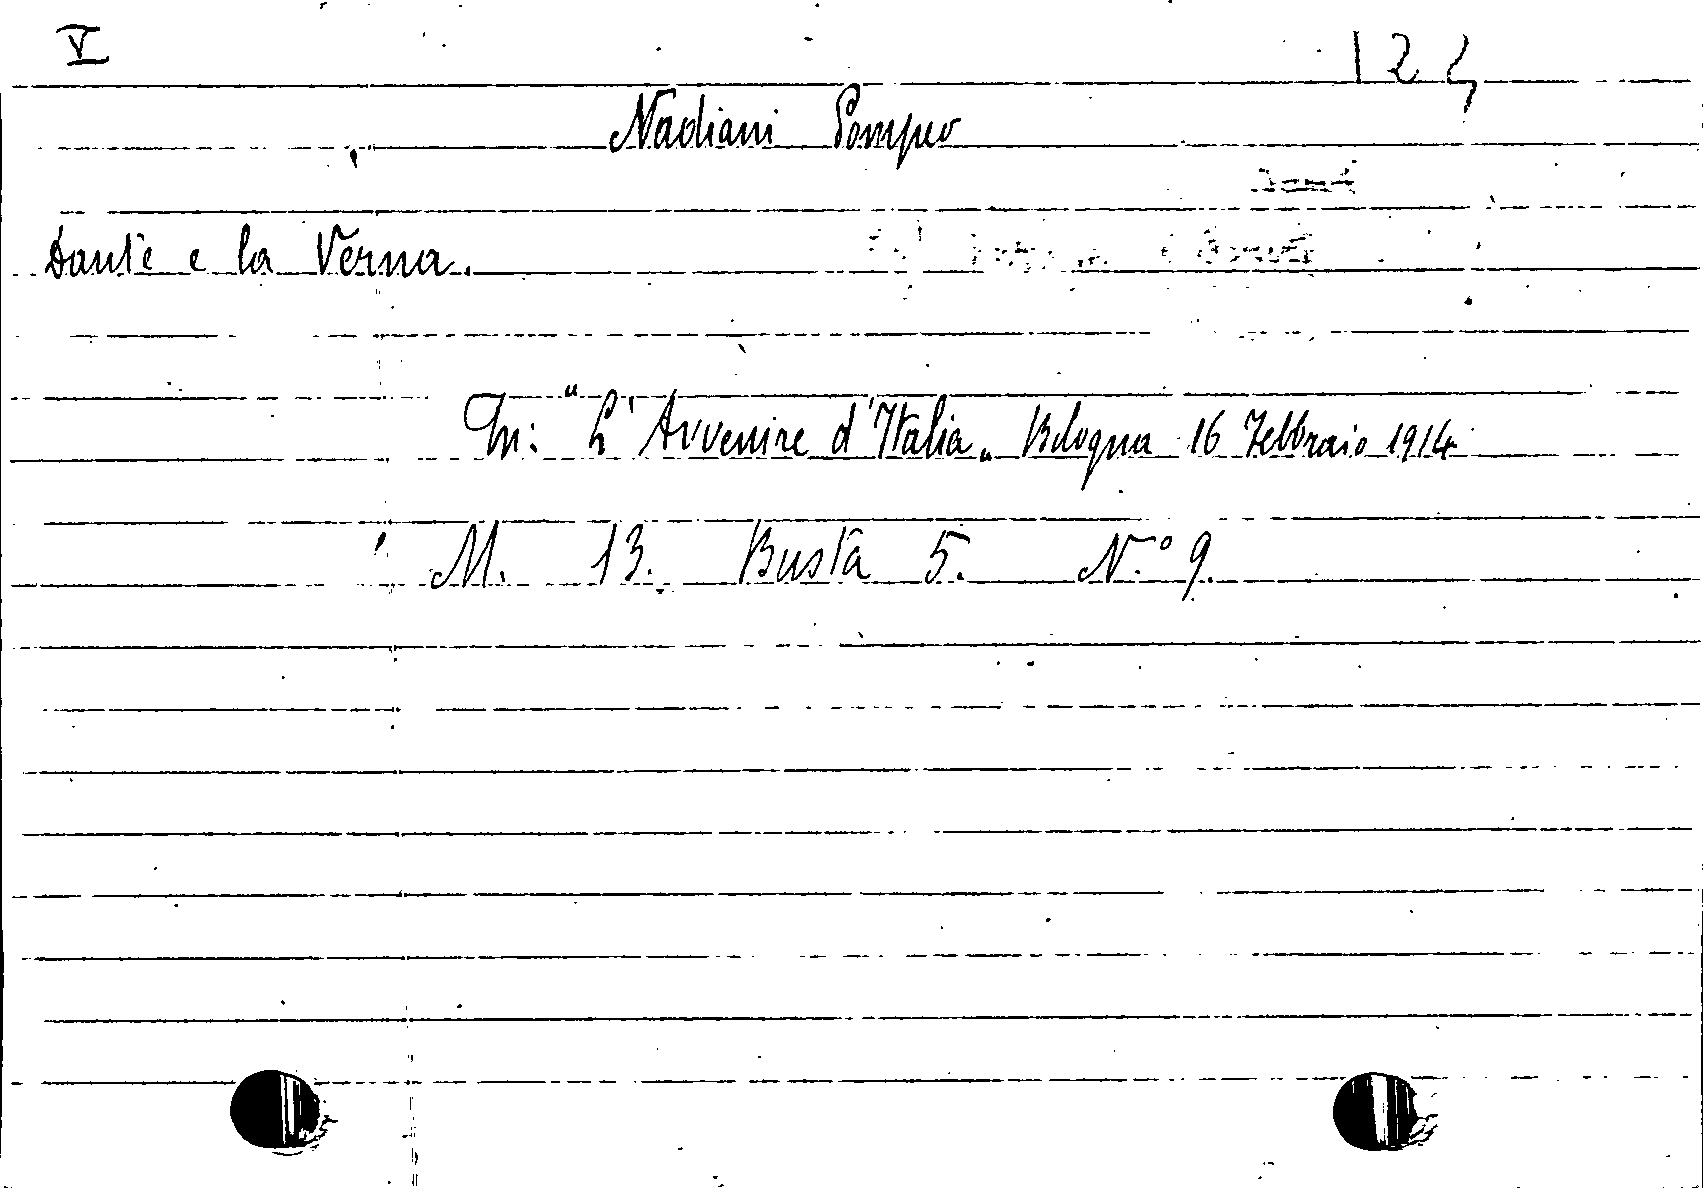 V
124
Nadiani Pompeo
Dante e la Verna.
In: "L'Avvenire d'Italia„ Bologna 16 Febbraio 1914
M. 13. Busta 5. N.° 9.